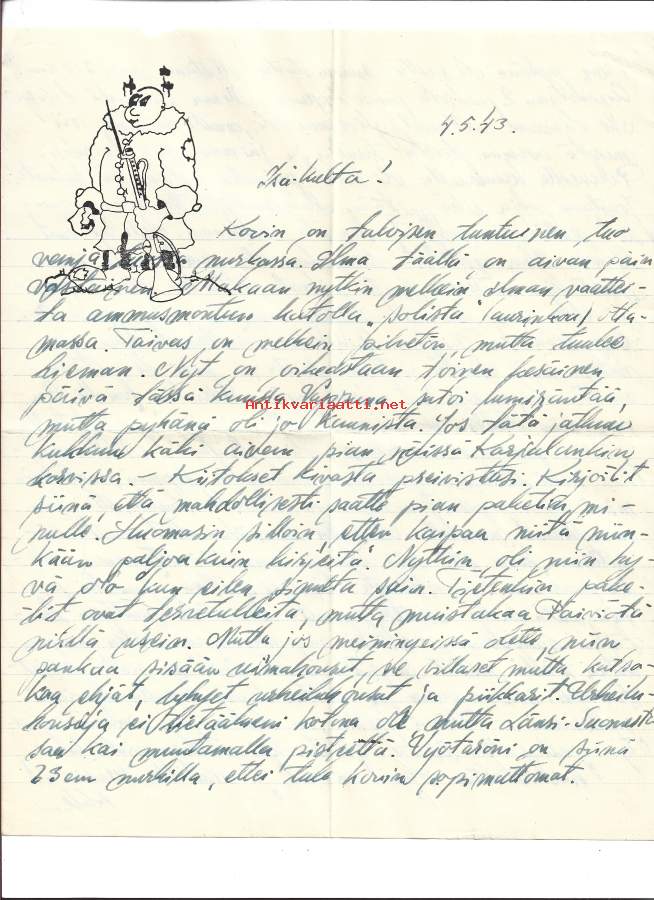 4.5.43.
Isä-kulta!
Kovin on talvisen tuntuinen tuo
nurkassa. Ilma täällä on aivan päin
Makaan nytkin melkein ilman vaattei-
ta ammusmontun katolla „solista" (aurinkoa) otta-
massa. Taivas on melkein pilvetön, mutta tuulee
hieman. Nyt on oikeastaan toinen kesäinen
päivä tässä kuussa. Vappuna satoi lumiräntää,
Antikvariaatti.net
mutta pyhänä oli jo kaunista. Jos tätä jatkuu
kukkuu käki aivan pian näissä Karjalankin
korvissa. – Kiitokset kivasta preivistäsi. Kirjoitit
siinä, että mahdollisesti saatte pian paketin mi-
nulle. Huomasin silloin, etten kaipaa niitä min-
kään paljoa kuin kirjeitä. Nytkin oli niin hy-
vä olo kun eilen sain. Tietenkin pake-
tit ovat tervetulleita, mutta muistakaa
niillä usein. Mutta jos meiningeissä olette, niin
pankaa sisään uimahousut, ne villaset mutta katso-
kaa ehjät, lyhyet urheiluhousut ja piikkarit. Urheilu-
housuja ei tietääkseni kotona ole mutta Länsi-Suomesta
saa kai muutamalla pisteellä. Vyötäröni on siinä
73 cm nurkilla, ettei tule kovin sopimattomat.